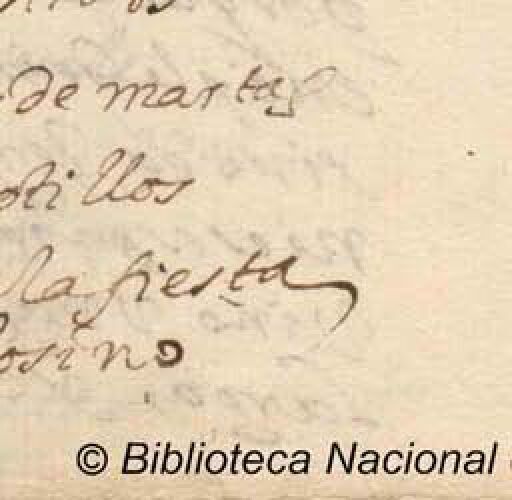 de martas
otillos
la fiesta
osino
© Biblioteca Nacional